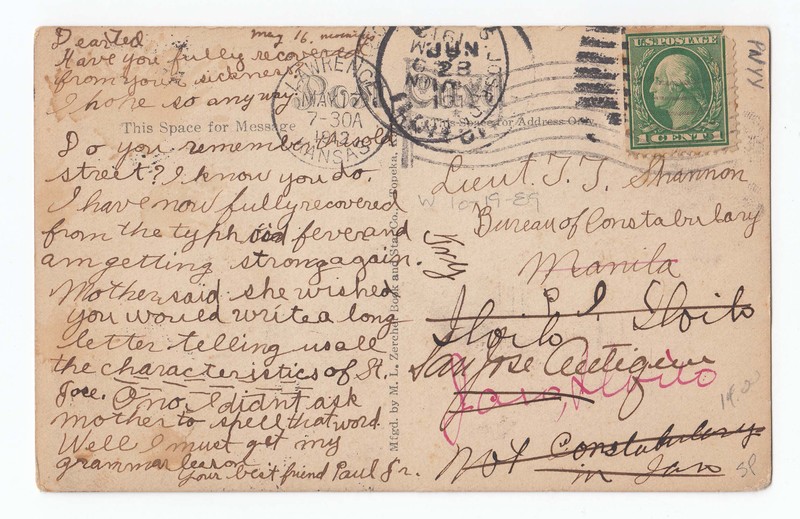 Dear Ted
May 16.
Have you fully recovered
from your sickness
I hope so anyway
This Space for Message
Do you remember this old
street? I know you do.
I have now fully recovered
from the typhoid fever and
am getting strong again.
Mother said she wished
you would write a long
letter telling us all
the characteristics of St.
Joe. O no, I didnt ask
mother to spell that word
Well I must get my
grammar
Your best friend Paul Jr.
LAWRENCE
MAY 17
7-30A
1913
KANSAS
Post Card
JUN
28
U.S. POSTAGE
1 CENT 1
This Space for Address Only.
Mfgd. by M. L. Zercher Book and Sta. Co., Topeka, K
W 10-19-E9
Lieut T. T. Shannon
Bureau of Constabulary
Manila
P I
Iloilo Iloilo
San Jose Antique
Jaro, Iloilo
Not Constabulary
in Jaro
SP